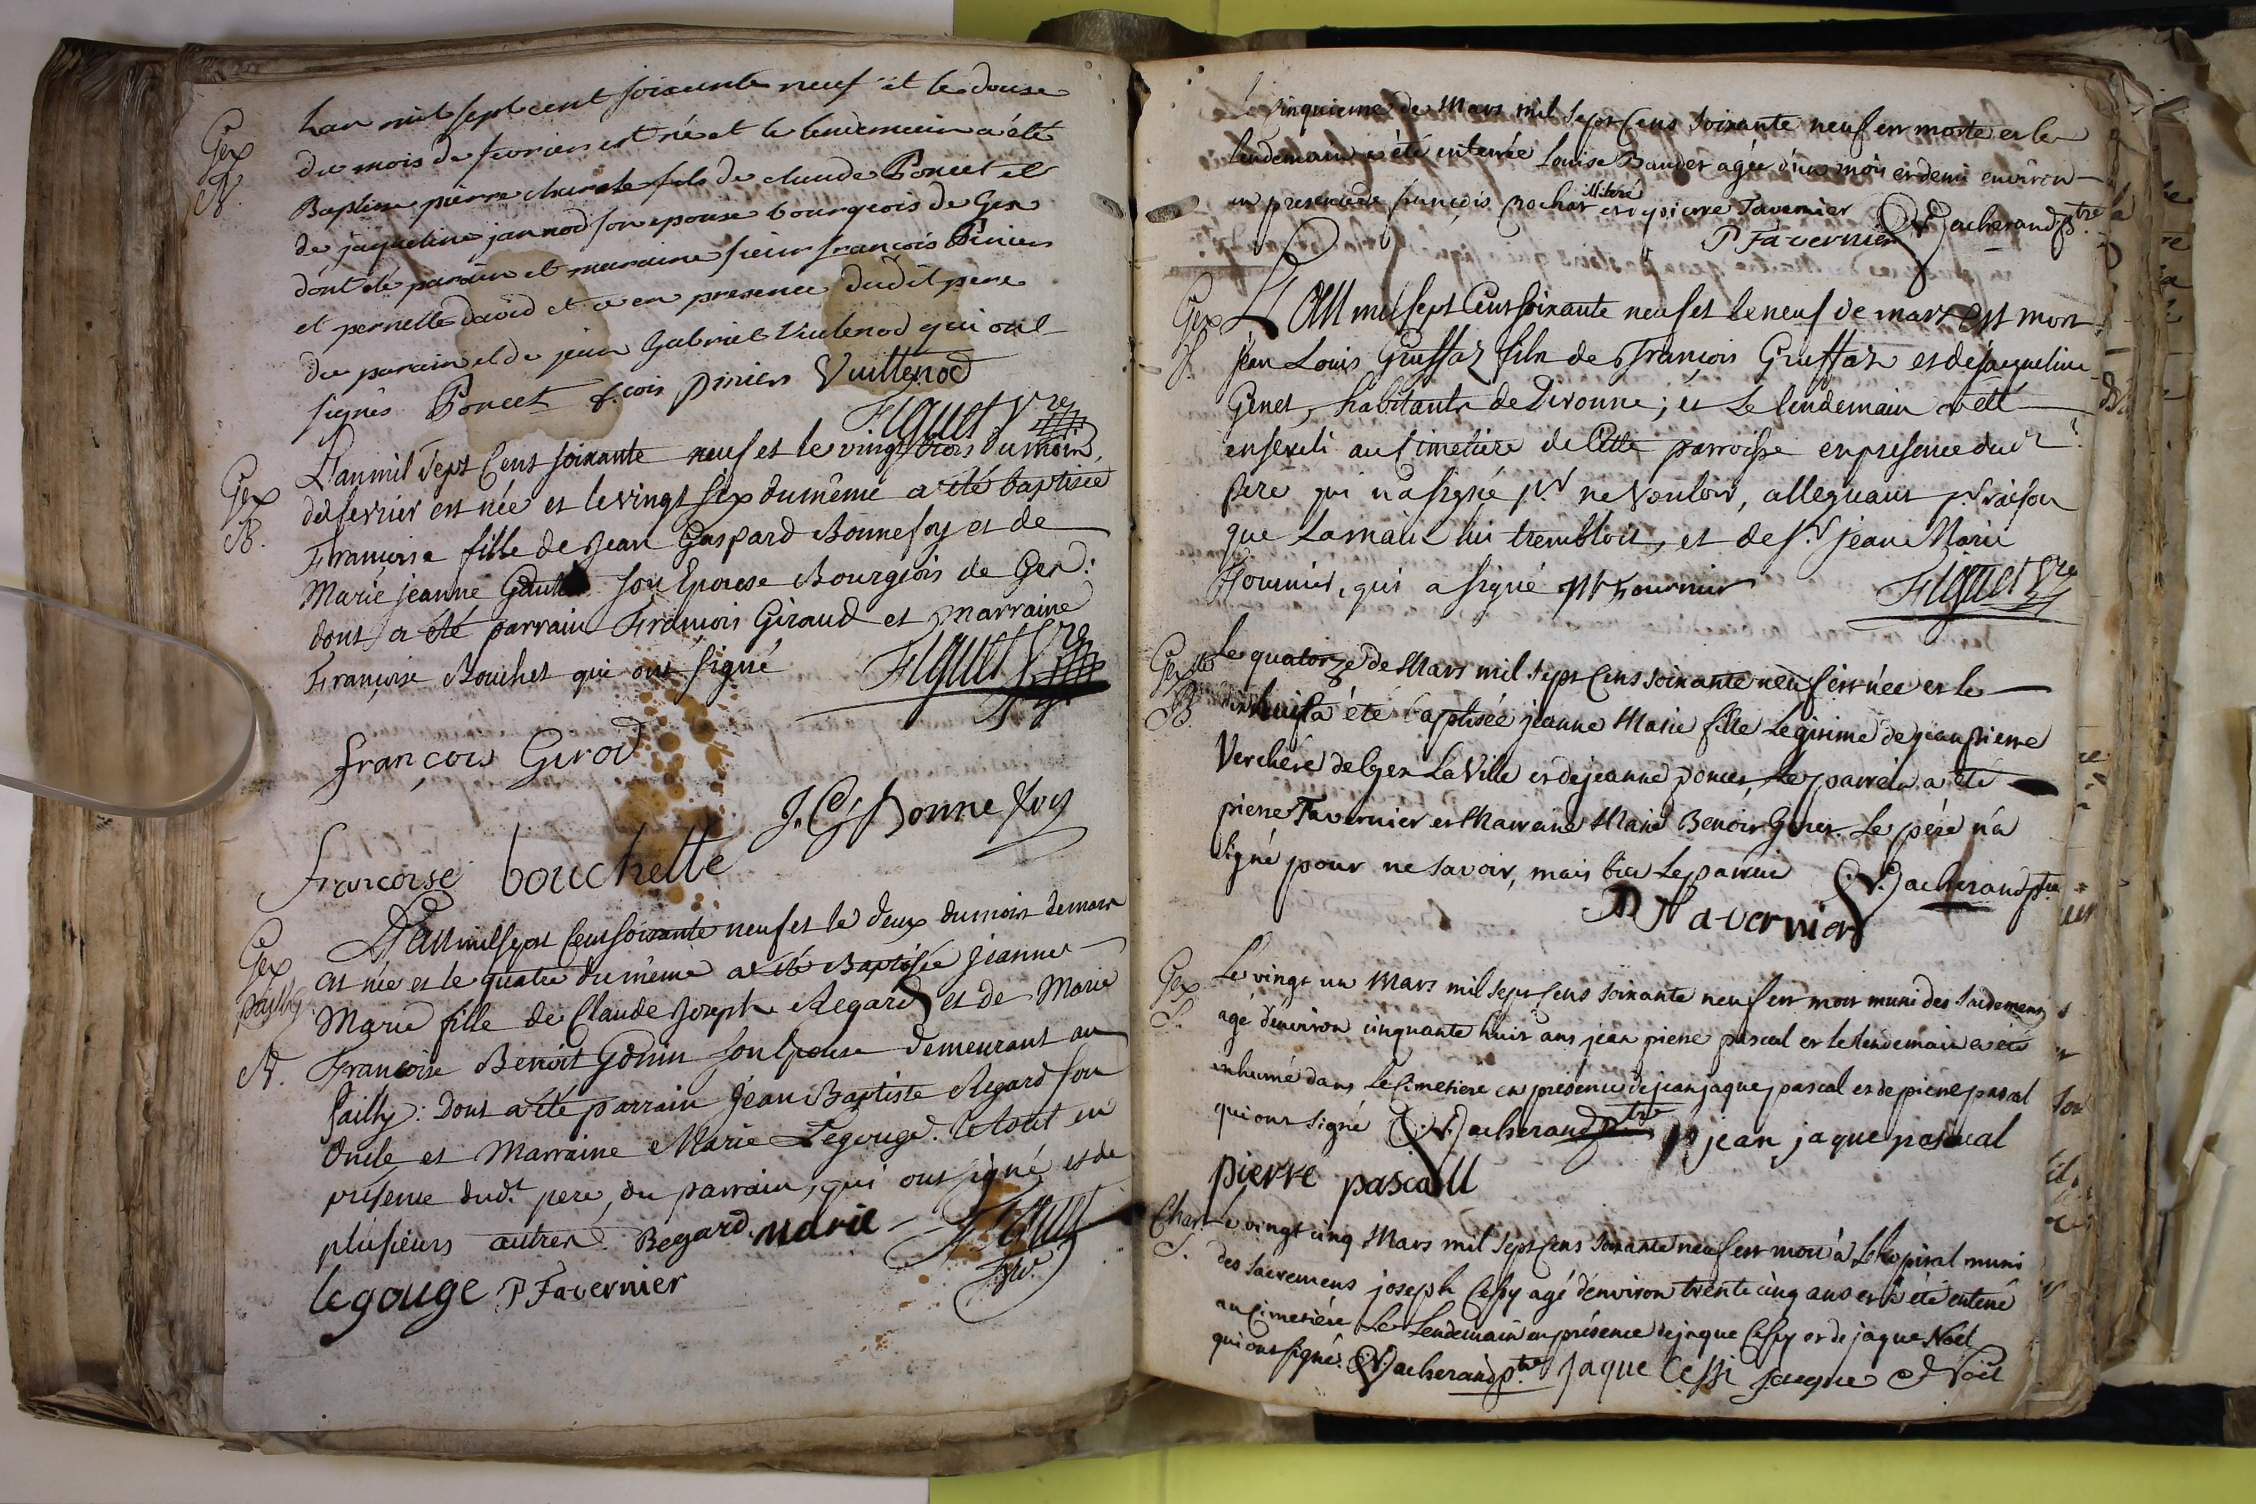 Gex
B.
Lan mil sept cent soixante neuf et le douse
du mois de fevrier est né et le lendemain a été
Baptise pierre charle fils de claude Poncet et
de jaqueline jannod son epouse bourgeois de Gex
dont été parain et maraine sieur françois Piniers
et pernette david et ce en presence dudit pere
du parain et de jean Gabriel Vulienod qui ont
signés Poncet f.cois piniers Vuillenod
Fiquet Vre
Gex
B.
L'an mil Sept Cens soixante neuf et le vingt trois du mois
de fevrier est née et le vingt six du même a été baptisée
Françoise fille de Jean Gaspard Bonnefoy et de
Marie jeanne son Epouse Bourgeois de Gex:
dont a été parrain François Giraud et marraine
Françoise Bouchet qui ont signé Fiquet Vre
françois Girod
J. G Bonnefoy
francoise bouchette
Gex
pailly
B.
L'an mil sept Cent soixante neuf et le deux du mois de mars
est née et le quatre du même a été Baptisée Jeanne
Marie fille de Claude Joseph Regard et de Marie
Françoise Benoit Gonin son Epouse demeurant au
pailly: Dont a été parrain Jean Baptiste Regard son
Oncle et Marraine Marie Legouge. le tout en
presence dud.t pere, du parrain, qui ont signé et de
plusieurs autres. Regard. marie Fiquet
legouge P Tavernier Vre
Le cinquieme de Mars mil Sept Cens Soixante neuf est morte et le
lendemain a été enterrée Louise Baudet agée d'un mois et demi environ
en presence de françois Rochat illiteré et de pierre Tavernier Vacherand ptre
P Tavernier
Gex
S.
L'an mil sept Cens soixante neuf et le neuf de mars est mort
jean Louis Gruffaz fils de François Gruffaz et de jaqueline
Genet, habitants de Divonne; et Le lendemain a été
enseveli au Cimetiere de Cette parroisse en presence dud.t
pere qui n'a signé p.r ne Vouloir, alleguant p.r raison
que La main lui trembloit, et de s.r jean Marie
Fournier, qui a signé JM Fournier Fiquet Vre
Gex
B.
Le quatorze de Mars mil Sept Cens soixante neuf est née et le
dix huit a été baptisée jeanne Marie fille Legitime de jean pierre
Verchére de Gex La Ville et de jeanne poncet, Le parrein a été
pierre Tavernier et Marraine Marie Benoit Genet. Le pére n'a
signé pour ne Savoir, mais bien Le parrein Vacherand ptre
P Tavernier
Gex
S.
Le vingt un Mars mil Sept Cens Soixante neuf est mort muni des Sacremens
agé d'environ cinquante huit ans jean pierre pascal et le lendemain a été
inhumé dans Le Cimetiere en présence de jean jaque pascal et de pierre pascal
qui ont signé Vacherand ptre jean jaque pascal
pierre pascall
S.
Le vingt cinq Mars mil Sept Cens Soixante neuf est mort à L'hopital muni
des Sacremens joseph Cessy agé d'environ trente cinq ans et a été enterré
au Cimetiére Le Lendemain en présence de jaque Cessy et de jaque Noël
qui ont signé. Vacherand ptre jaque Cessi jaque Noël